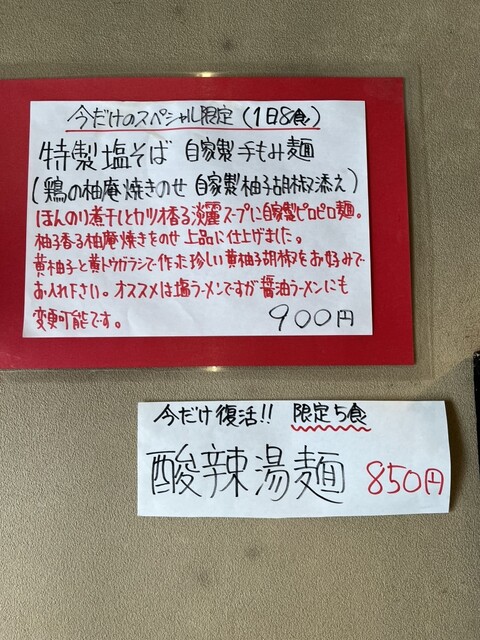 今だけのスペシャル限定(1日8食)
特製塩そば 自家製手もみ麺
(鶏の柚庵焼きのせ 自家製柚子胡椒添え)
ほんのり煮干しとカツオ香る淡麗スープに自家製ピロピロ麺。
柚子香る柚庵焼きをのせ上品に仕上げました。
黄柚子と黄トウガラシで作った珍しい黄柚子胡椒をお好みで
お入れ下さい。オススメは塩ラーメンですが醤油ラーメンにも
変更可能です。
900円
今だけ復活!! 限定5食
酸辣湯麺 850円